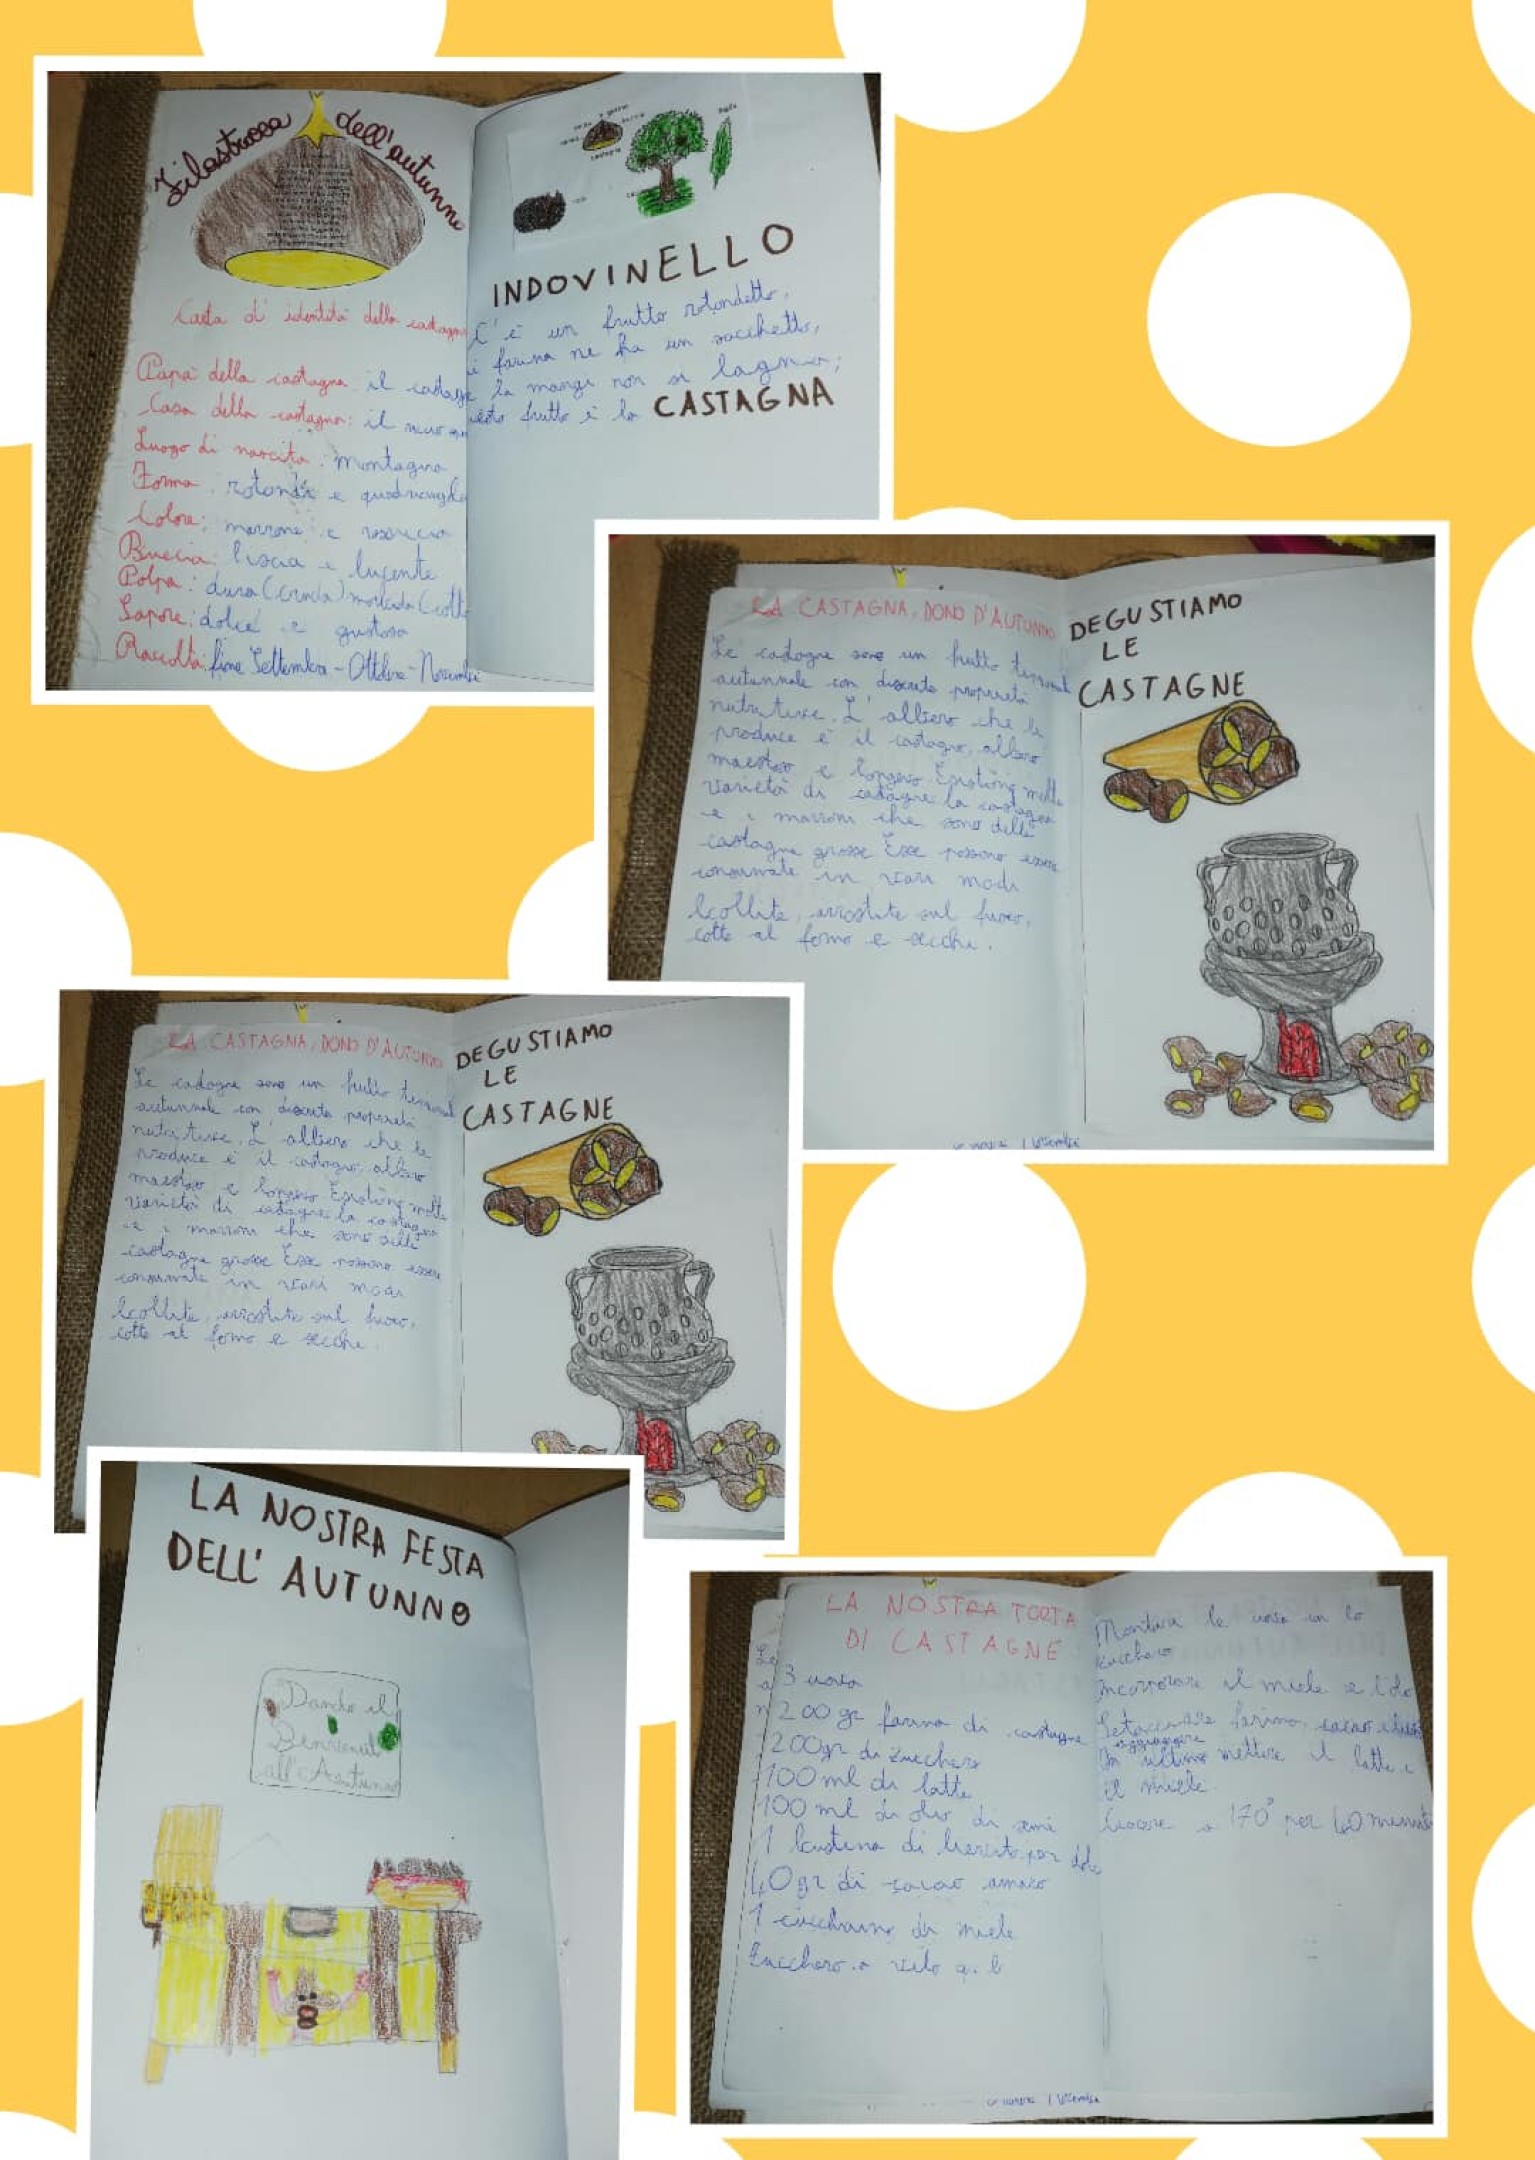 Filastrocca dell'autunno
Carta d'identità della castagna
Papà della castagna: il castagno
Casa della castagna: il riccio
Luogo di nascita: montagna
Forma: rotonda e
Colore: marrone e rossiccio
Buccia: liscia e lucente
Polpa: dura (cruda) morbida (cotta
Sapore: dolce e gustoso
Raccolta: fine Settembre - Ottobre - Novembre
castagna
foglia
INDOVINELLO
C'è un frutto rotondetto,
di farina ne ha un sacchetto,
la mangi non si lagna;
questo frutto è la CASTAGNA
LA CASTAGNA, DONO D'AUTUNNO
Le castagne sono un frutto
autunnale con discrete proprietà
nutritive. L'albero che le
produce è il castagno, albero
maestoso e longevo. Esistono molte
varietà di castagne: la castagna
e i marroni che sono delle
castagne grosse Esse possono essere
consumate in vari modi
bollite, arrostite sul fuoco,
cotte al forno e secche.
DEGUSTIAMO
LE
CASTAGNE
LA CASTAGNA, DONO D'AUTUNNO
Le castagne sono un frutto
autunnale con discrete proprietà
nutritive. L'albero che le
produce è il castagno, albero
maestoso e longevo. Esistono molte
varietà di castagne: la castagna
e i marroni che sono delle
castagne grosse Esse possono essere
consumate in vari modi
bollite, arrostite sul fuoco,
cotte al forno e secche.
DEGUSTIAMO
LE
CASTAGNE
LA NOSTRA FESTA
DELL'AUTUNNO
Dando il
Benvenuto
all'Autunno
LA NOSTRA TORTA
DI CASTAGNE
3 uova
200 gr farina di castagne
200gr di zucchero
100 ml di latte
100 ml di olio di semi
1 bustina di lievito per dolci
40 gr di cacao amaro
1 cucchiaino di miele
Zucchero a velo q. b
Montare le uova con lo
zucchero
Incorporare il miele e l'olio
Setacciare farina, cacao e lievito
aggiungere
In ultimo mettere il latte e
il miele.
Cuocere a 170° per 40 minuti